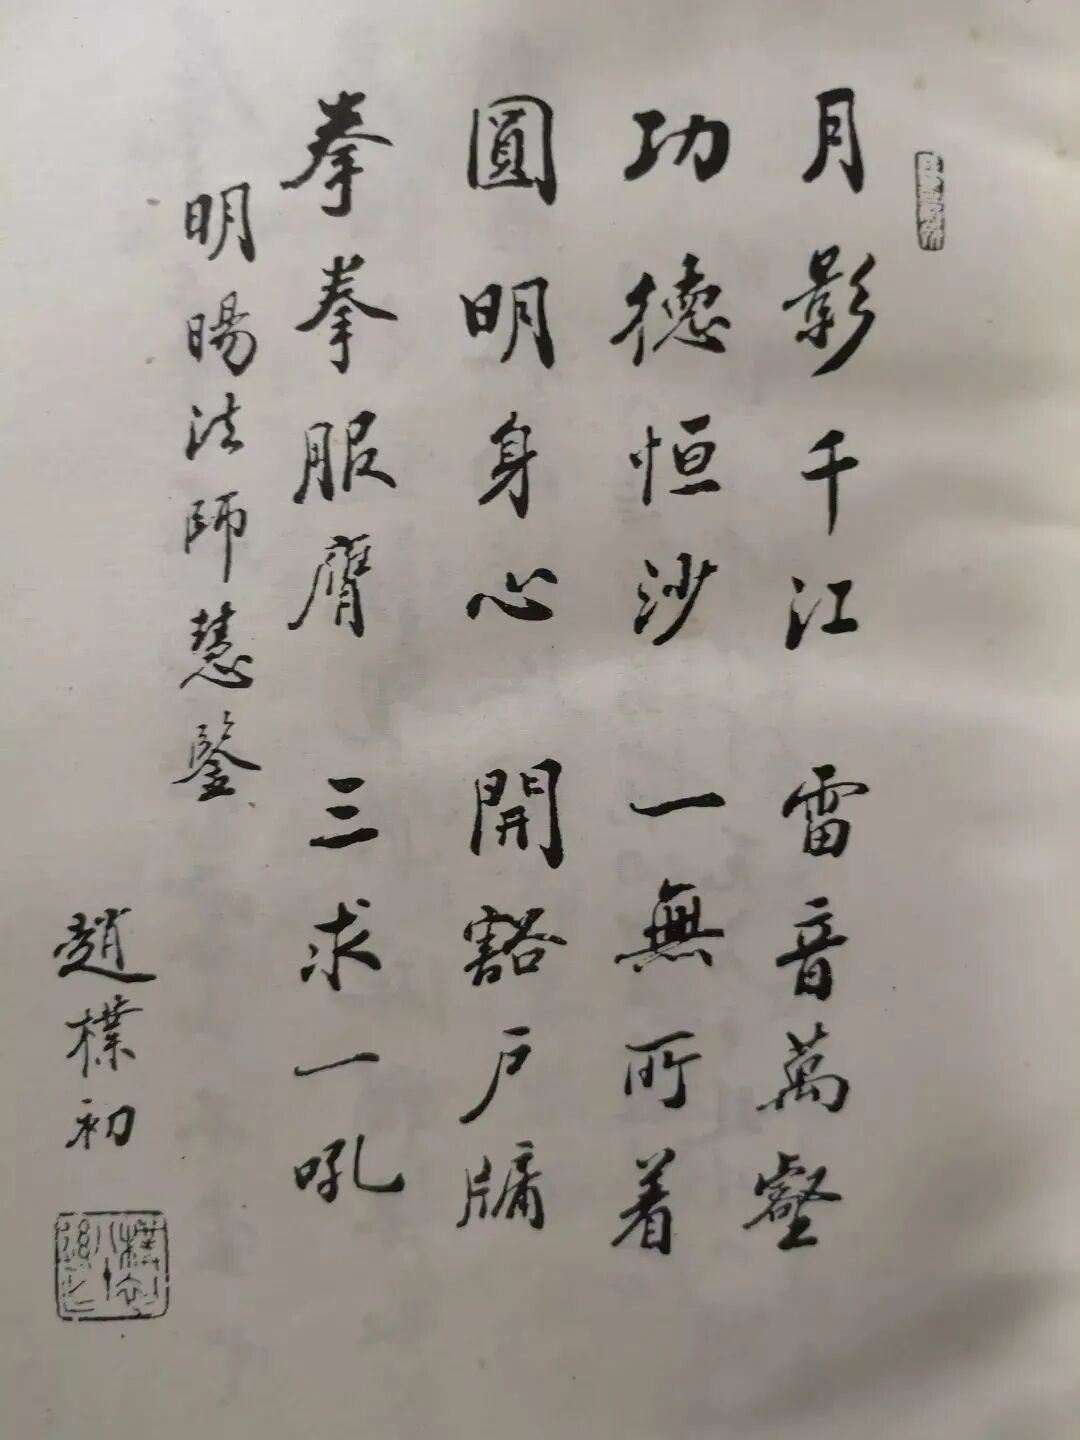 月影千江 雷音萬壑
功德恒沙 一無所着
圓明身心 開豁戶牖
拳拳服膺 三求一吼
明暘法師慧鑒
趙樸初